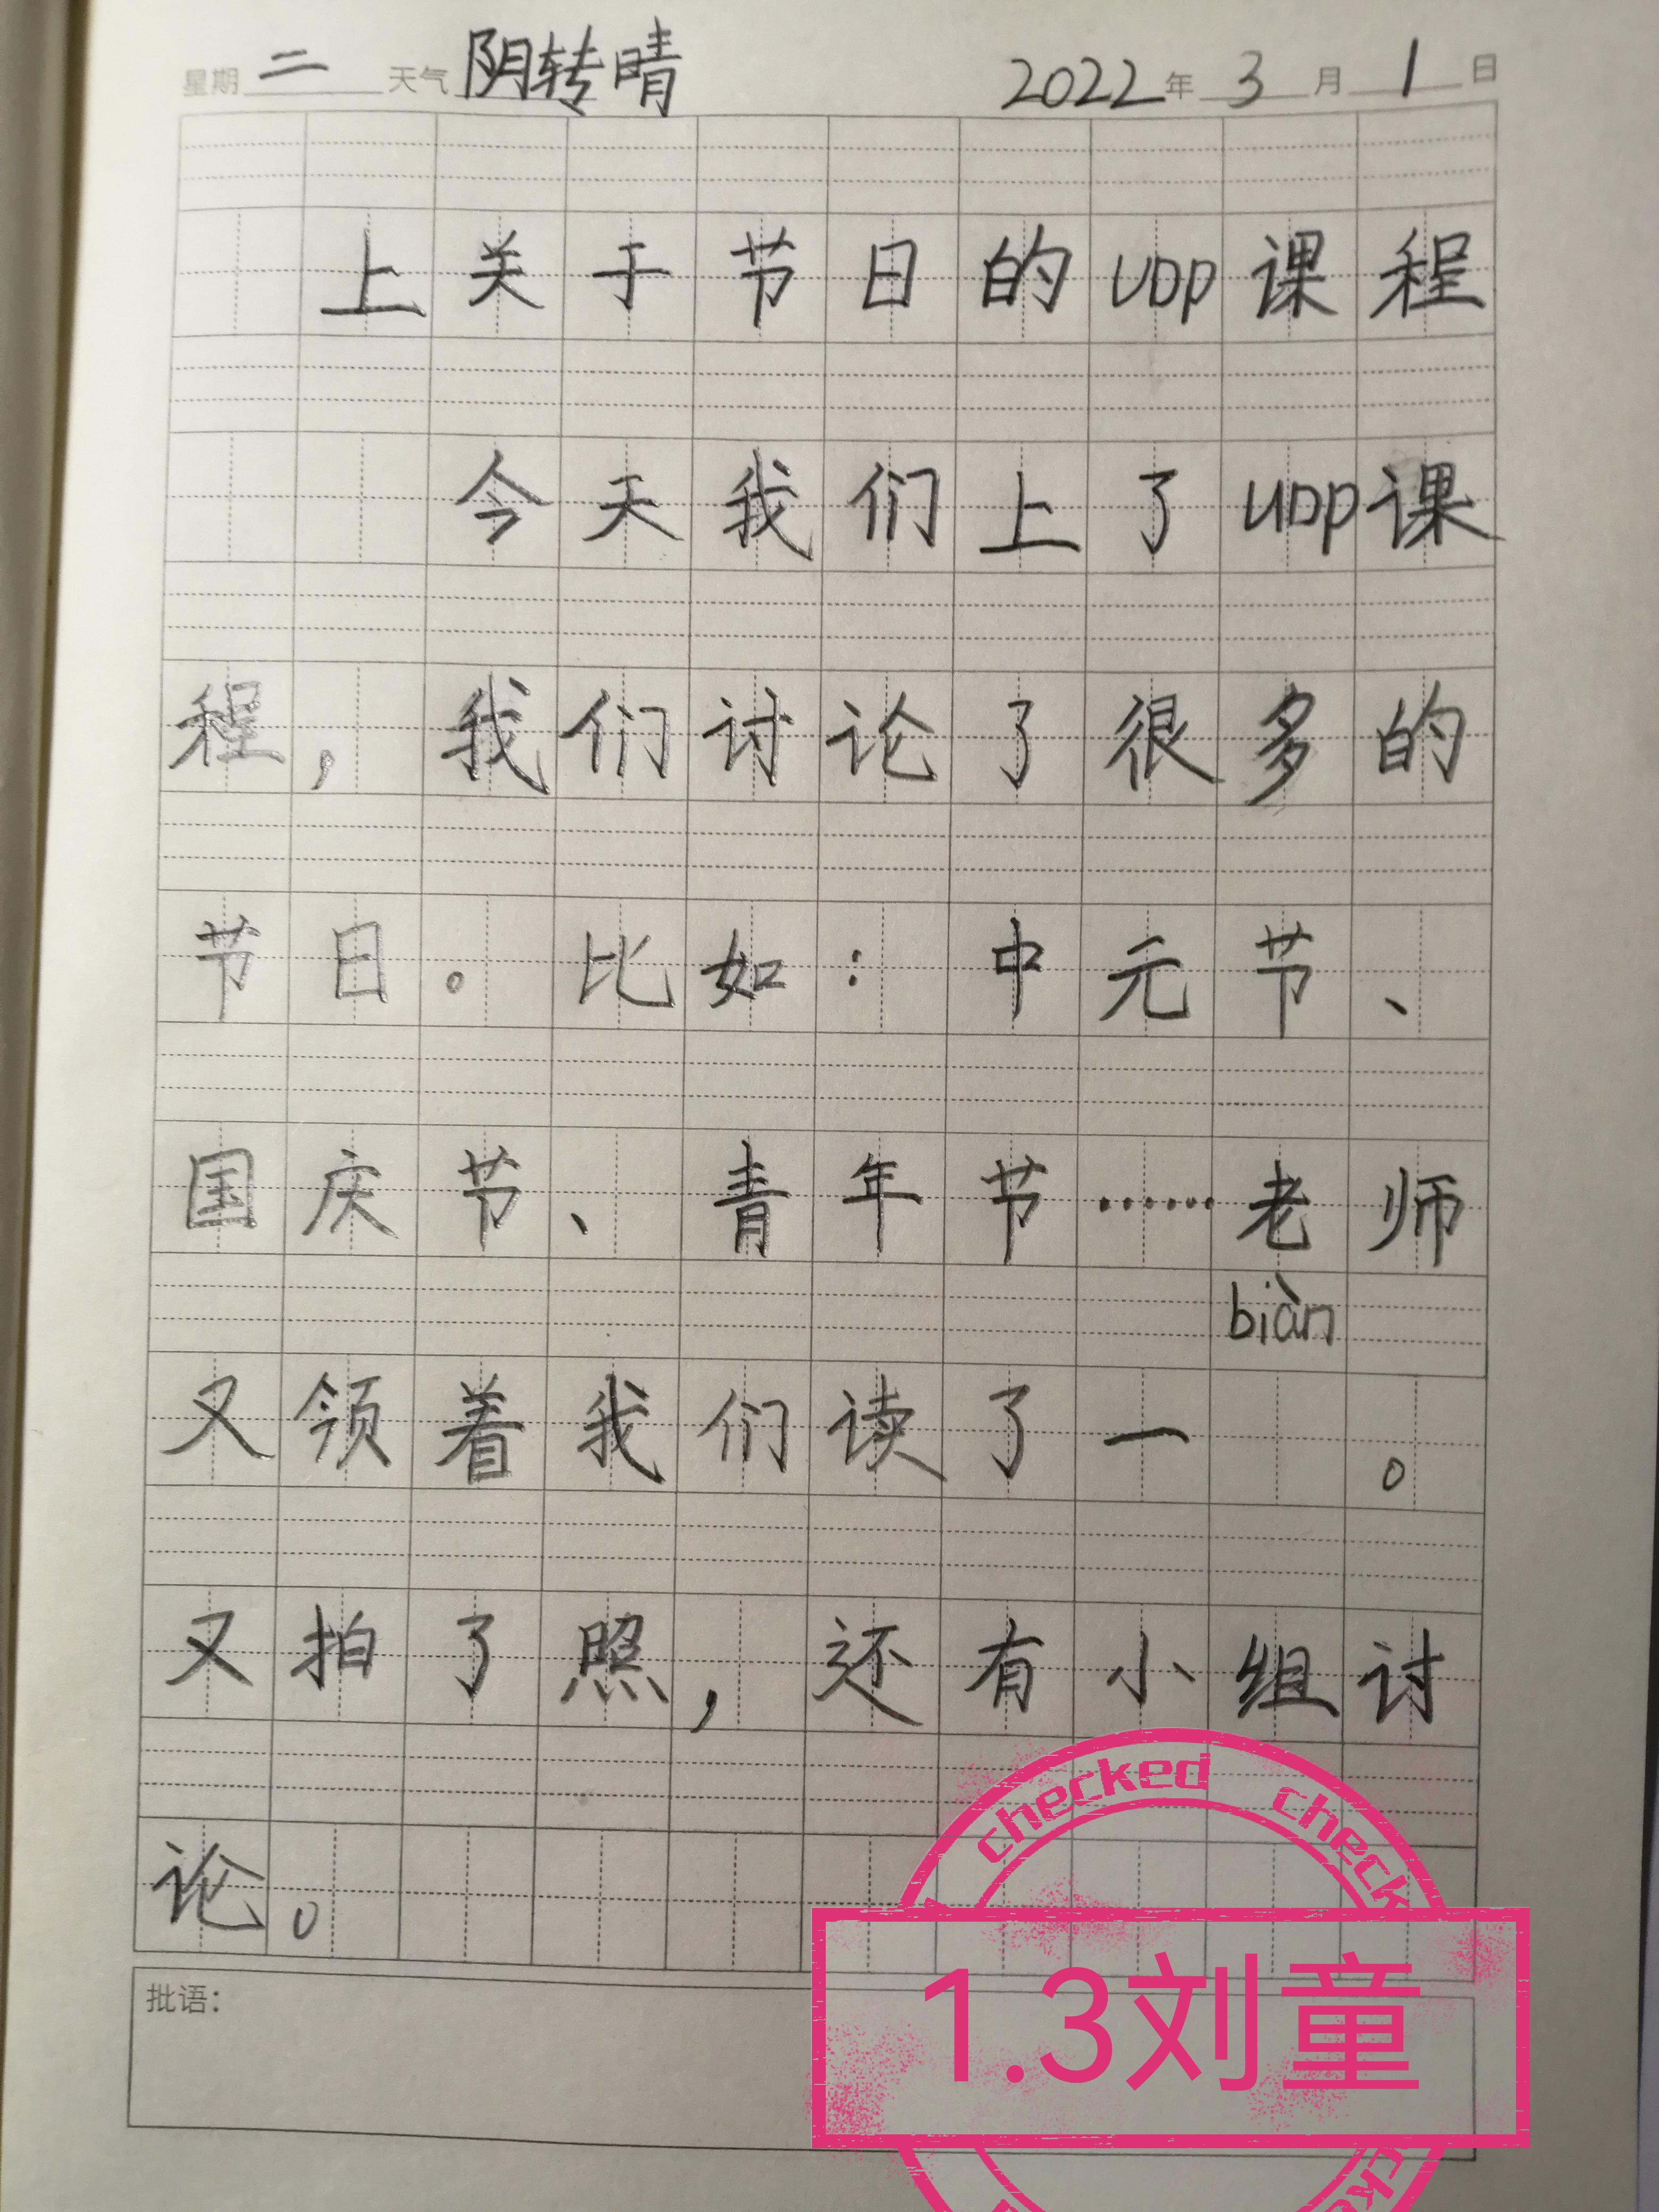 星期 二 天气 阴转晴 2022 年 3 月 1 日
上关于节日的UDP课程
今天我们上了UDP课
程，我们讨论了很多的
节日。比如：中元节、
国庆节、青年节……老师
biàn
又领着我们读了一 。
又拍了照，还有小组讨
论。
批语：
checked check
1.3刘童